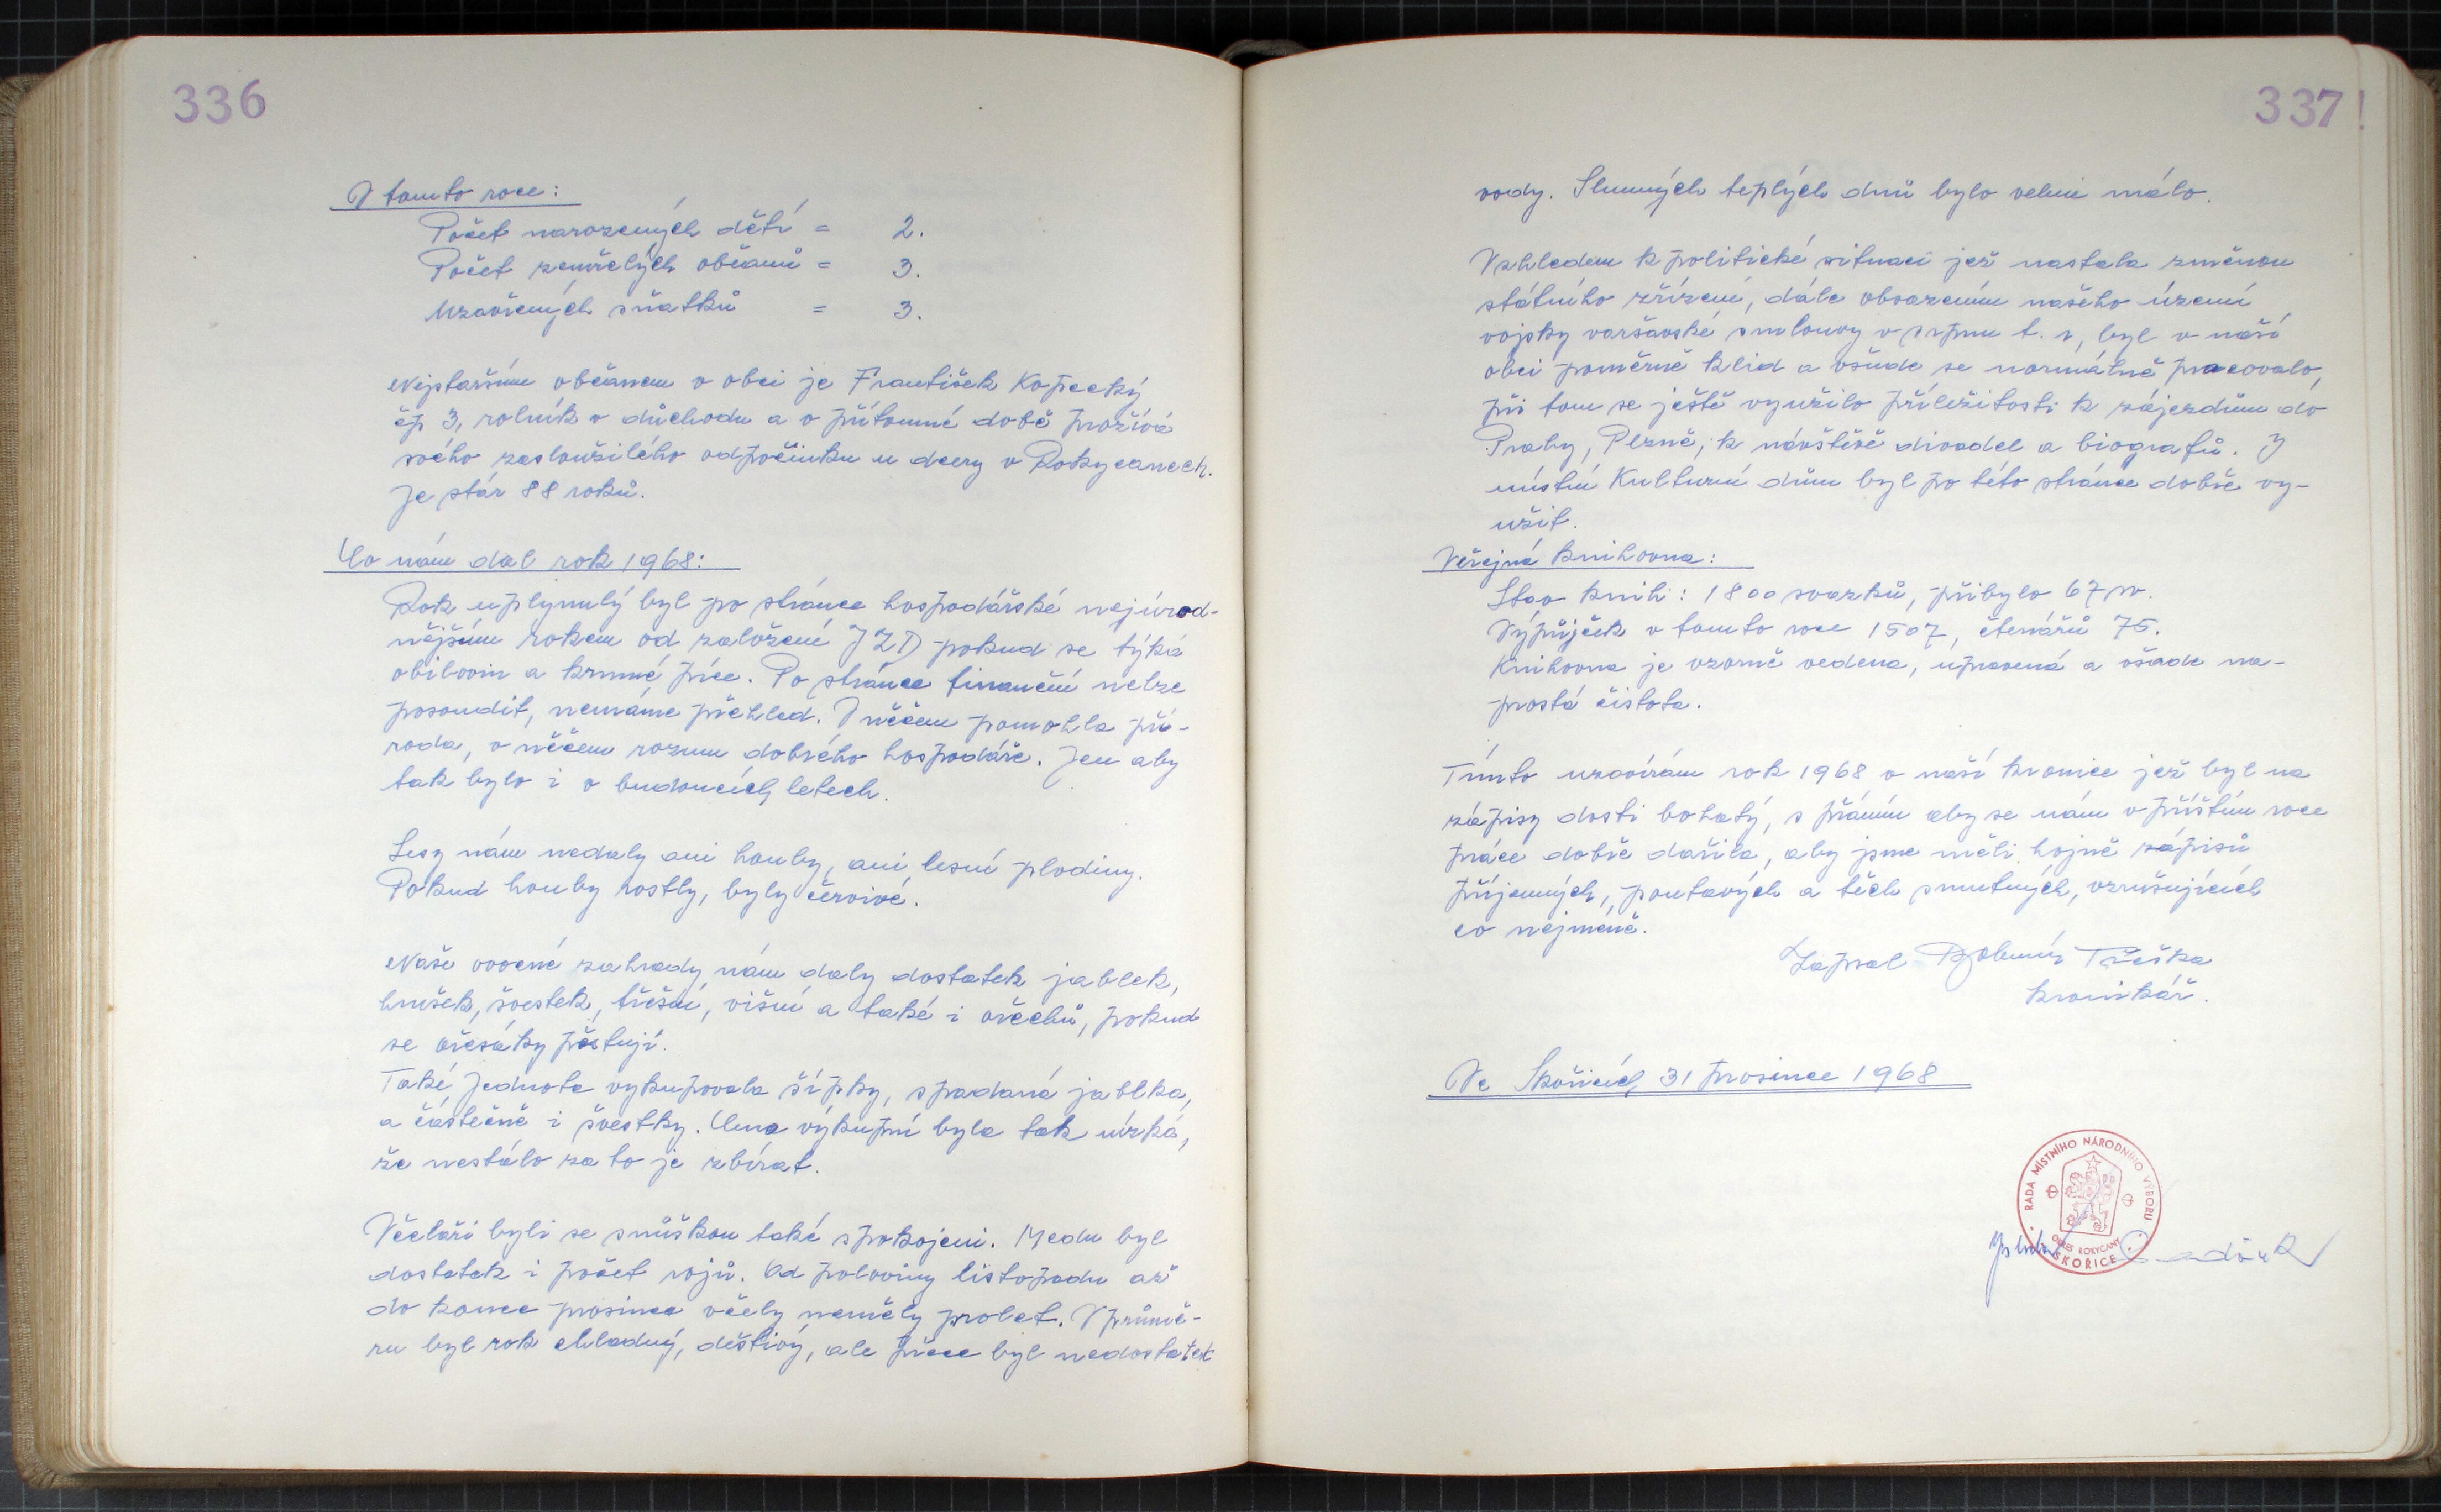 336
V tomto roce:
Počet narozených dětí = 2.
Počet zemřelých občanů = 3.
Uzavřených sňatků = 3.
Nejstarším občanem v obci je František Kopecký
čp 3, rolník v důchodu a v přítomné době prožívá
svého zasloužilého odpočinku u dcery v Rokycanech.
Je stár 88 roků.
Co nám dal rok 1968:
Rok uplynulý byl po stránce hospodářské nejúrod-
nějším rokem od založení JZD pokud se týká
obilovin a krmné píce. Po stránce finanční nelze
posoudit, nemáme přehled. V něčem pomohla pří-
roda, v něčem rozum dobrého hospodáře. Jen aby
tak bylo i v budoucích letech.
Lesy nám nedaly ani houby, ani lesní plodiny.
Pokud houby rostly, byly červivé.
Naše ovocné zahrady nám daly dostatek jablek,
hrušek, švestek, třešní, višní a také i ořechů, pokud
se ořešáky pěstují.
Také Jednota vykupovala šípky, spadaná jablka,
a částečně i švestky. Cena výkupní byla tak nízká,
že nestálo za to je sbírat.
Včelaři byli se snůškou také spokojeni. Medu byl
dostatek i počet rojů. Od poloviny listopadu až
do konce prosince včely neměly prolet. V průmě-
ru byl rok chladný, deštivý, ale přece byl nedostatek
337
vody. Slunných teplých dnů bylo velmi málo.
Vzhledem k politické situaci jež nastala změnou
státního zřízení, dále obsazením našeho území
vojsky varšavské smlouvy v srpnu t. r, byl v naší
obci poměrně klid a všude se normálně pracovalo,
při tom se ještě využilo příležitosti k zájezdům do
Prahy, Plzně, k návštěvě divadel a biografů. I
místní Kulturní dům byl po této stránce dobře vy-
užit.
Veřejná knihovna:
Stav knih: 1800 svazků, přibylo 67 sv.
Výpůjček v tomto roce 1507, čtenářů 75.
Knihovna je vzorně vedena, upravená a všude na-
prostá čistota.
Tímto uzavírám rok 1968 v naší kronice jež byl na
zápisy dosti bohatý, s přáním aby se nám v příštím roce
práce dobře dařila, aby jsme měli hojně zápisů
příjemných, poutavých a těch smutných, vzrušujících
co nejméně.
Zapsal Bohumír Třeška
kronikář.
Ve Skořicích 31 prosince 1968
RADA MÍSTNÍHO NÁRODNÍHO VÝBORU
OKRES ROKYCANY
SKOŘICE